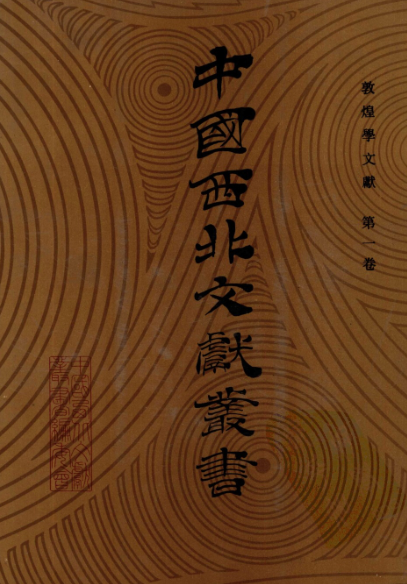 敦煌學文獻 第一卷
中國西北文獻叢書